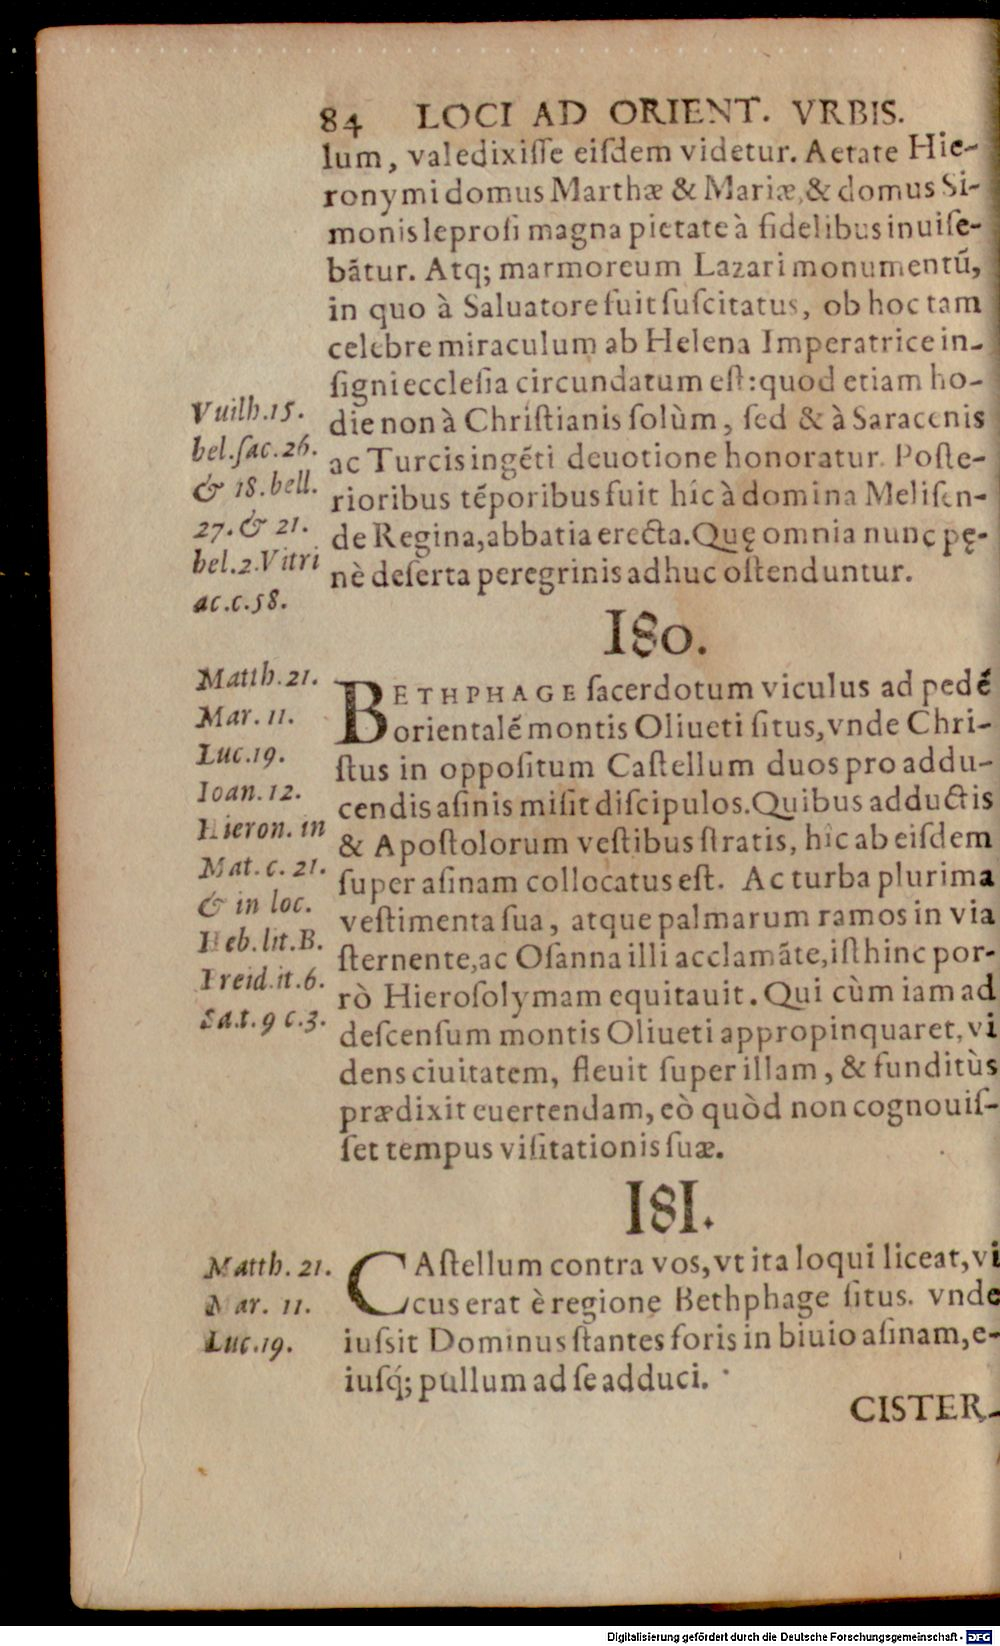 84 LOCI AD ORIENT. VRBIS.
lum, valedixiſſe eiſdem videtur. Aetate Hie-
ronymi domus Marthæ & Mariæ, & domus Si-
monis leproſi magna pietate à fidelibus inuiſe-
bãtur. Atq; marmoreum Lazari monumentũ,
in quo à Saluatore fuit ſuſcitatus, ob hoc tam
celebre miraculum ab Helena Imperatrice in-
ſigni eccleſia circundatum eſt: quod etiam ho-
die non à Chriſtianis ſolùm, ſed & à Saracenis
ac Turcis ingẽti deuotione honoratur. Poſte-
rioribus tẽporibus fuit hîc à domina Meliſen-
de Regina, abbatia erecta. Quę omnia nunc pę-
nè deſerta peregrinis adhuc oſtenduntur.
Vuilh. 15.
bel. ſac. 26.
& 18. bell.
27. & 21.
bel. 2. Vitri
ac. c. 58.
180.
BETHPHAGE ſacerdotum viculus ad pedẽ
orientalẽ montis Oliueti ſitus, vnde Chri-
ſtus in oppoſitum Caſtellum duos pro addu-
cendis aſinis miſit diſcipulos. Quibus adductis
& Apoſtolorum veſtibus ſtratis, hîc ab eiſdem
ſuper aſinam collocatus eſt. Ac turba plurima
veſtimenta ſua, atque palmarum ramos in via
ſternente, ac Oſanna illi acclamãte, iſthinc por-
rò Hieroſolymam equitauit. Qui cùm iam ad
deſcenſum montis Oliueti appropinquaret, vi
dens ciuitatem, fleuit ſuper illam, & funditùs
prædixit euertendam, eò quòd non cognouiſ-
ſet tempus viſitationis ſuæ.
Matth. 21.
Mar. 11.
Luc. 19.
Ioan. 12.
Hieron. in
Mat. c. 21.
& in loc.
Heb. lit. B.
Breid. it. 6.
Sa. t. 9 c. 3.
181.
CAſtellum contra vos, vt ita loqui liceat, vi
cus erat è regione Bethphage ſitus. vnde
iuſsit Dominus ſtantes foris in biuio aſinam, e-
iuſq́; pullum ad ſe adduci.
Matth. 21.
Mar. 11.
Luc. 19.
CISTER-
Digitalisierung gefördert durch die Deutsche Forschungsgemeinschaft - DFG